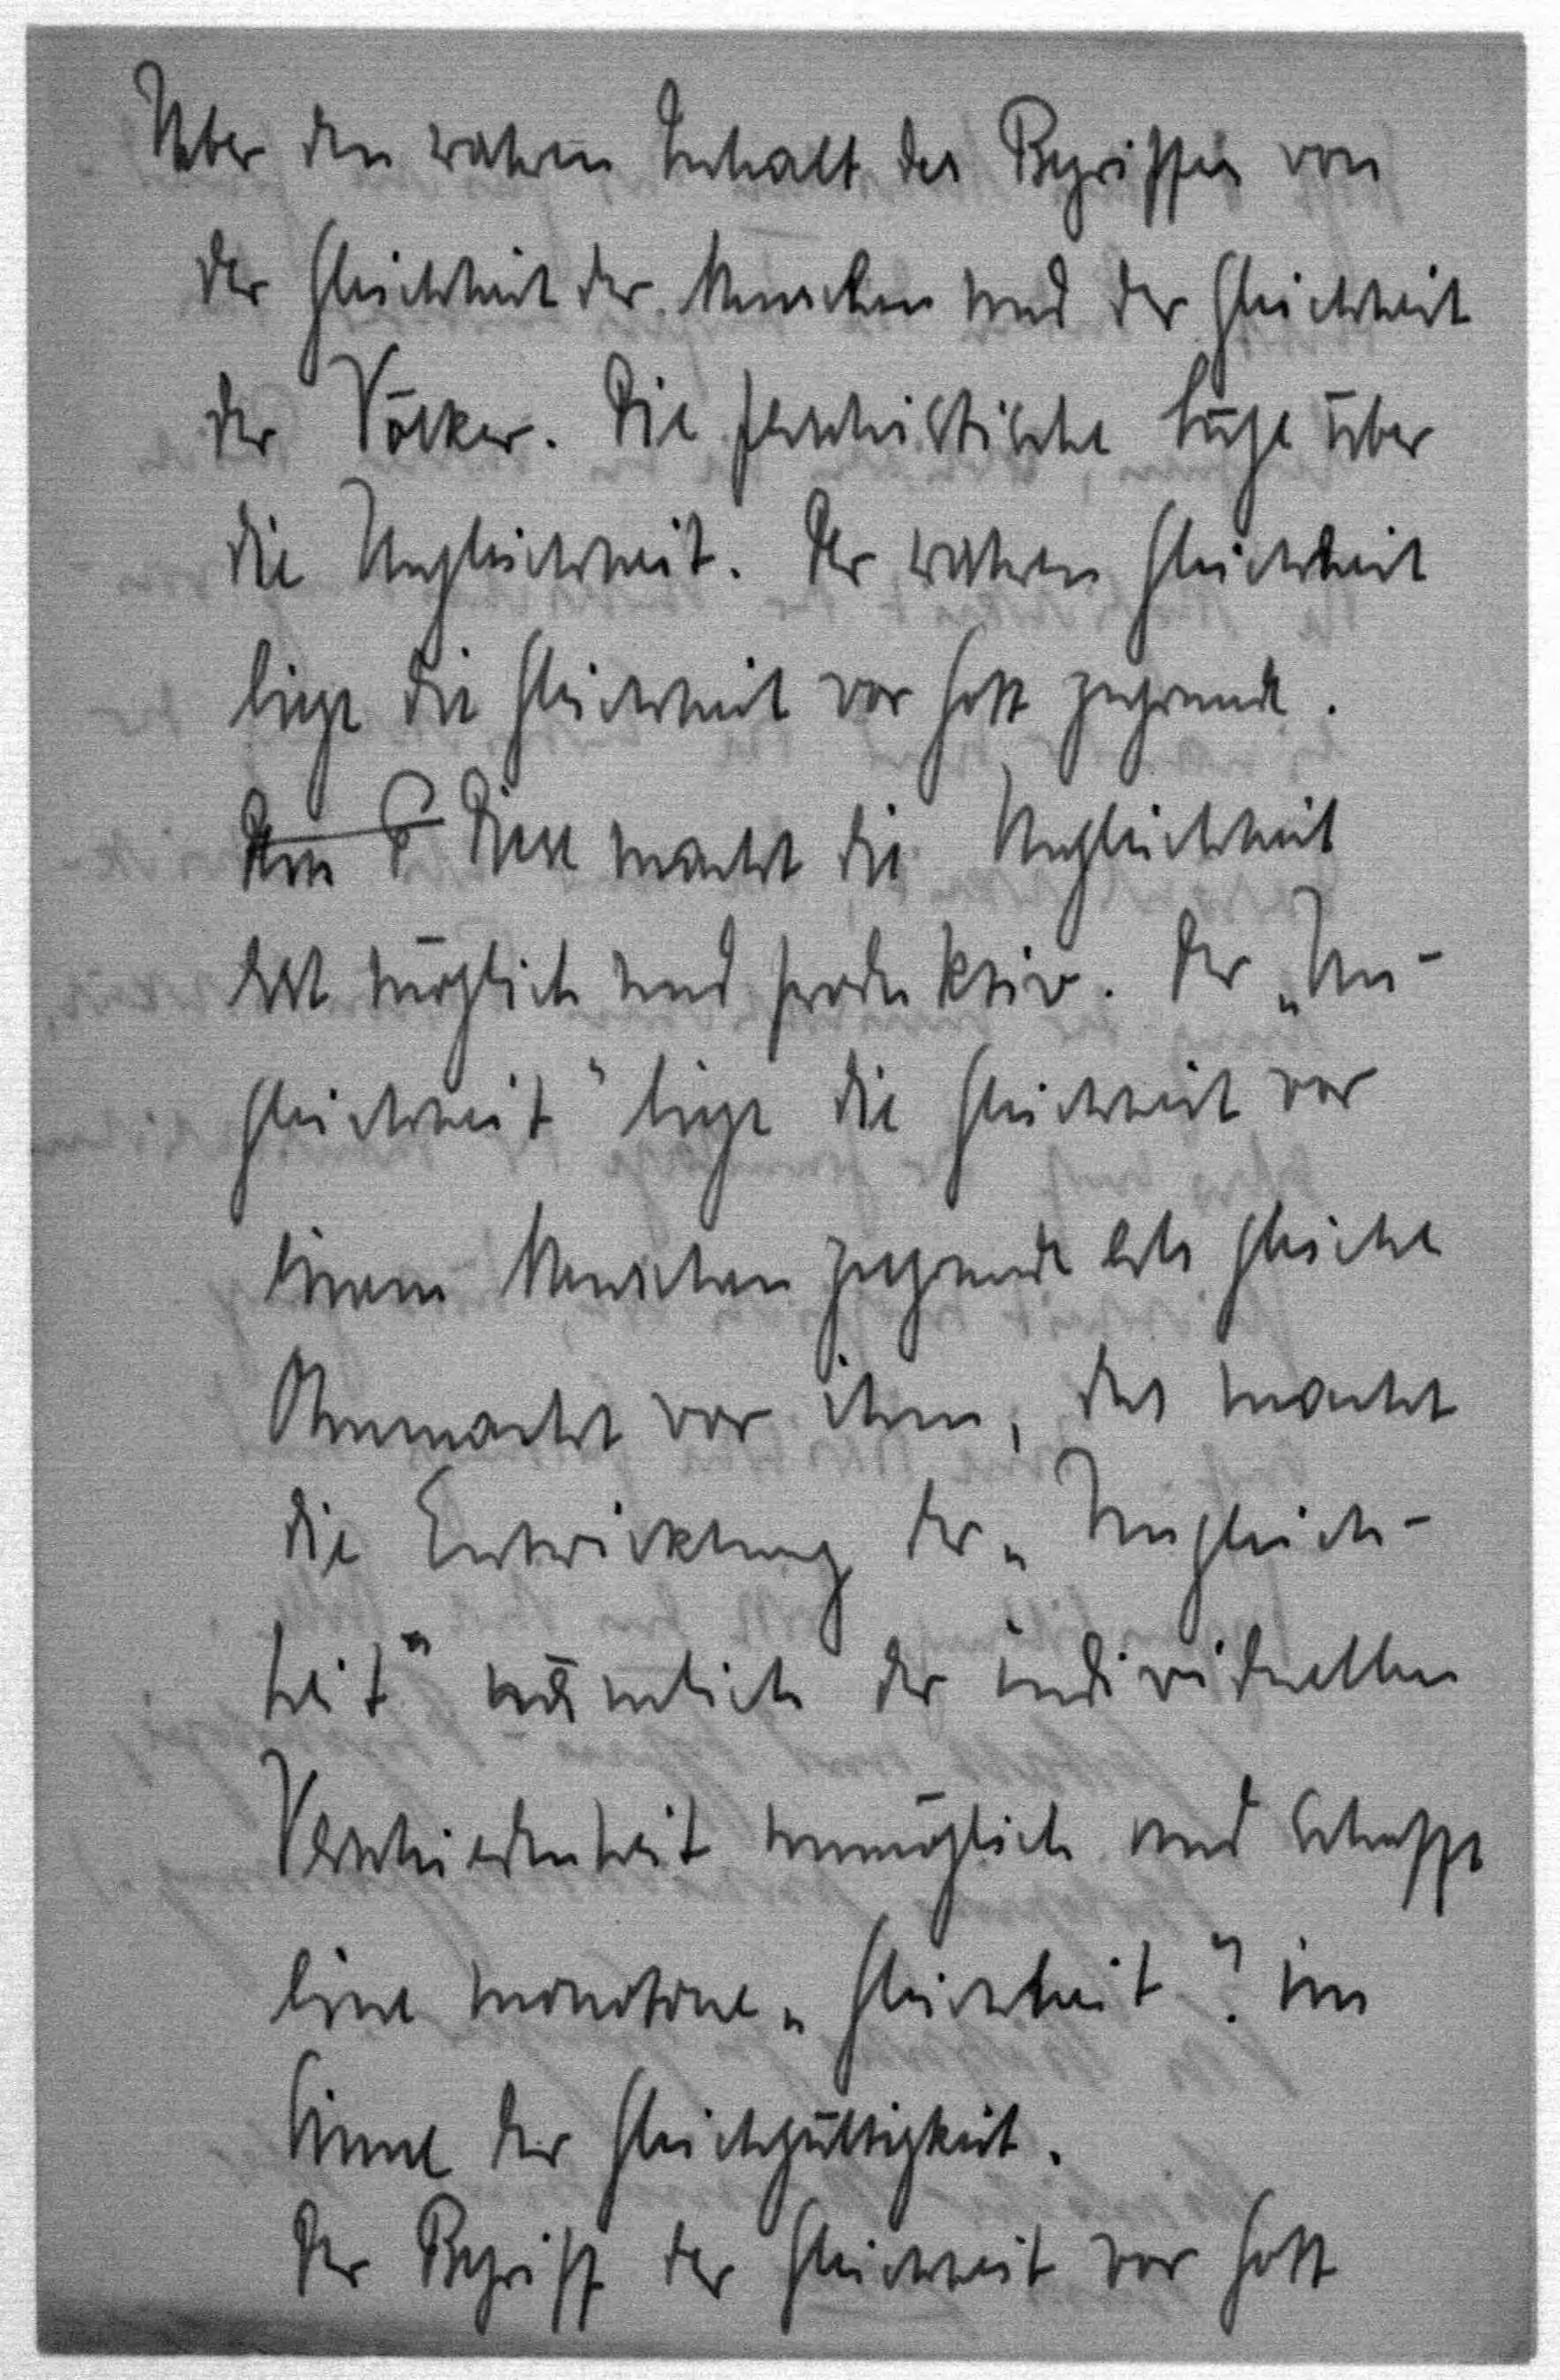 Ueber den wahren Inhalt des Begriffes von
der Gleichheit der Menschen und der Gleichheit
der Völker. Die faschistische Lüge über
die Ungleichheit. Der wahren Gleichheit
liegt die Gleichheit vor Gott zugrunde.
Diese macht die Ungleichheit
erst möglich und produktiv. Der „Un-
gleichheit" liegt die Gleichheit vor
einem Menschen zugrunde als gleiche
Ohnmacht vor ihm, das macht
die Entwicklung der „Ungleich-
heit" nämlich der individuellen
Verschiedenheit unmöglich und schafft
eine monotone „Gleichheit". im
Sinne der Gleichgültigkeit.
Der Begriff der Gleichheit vor Gott